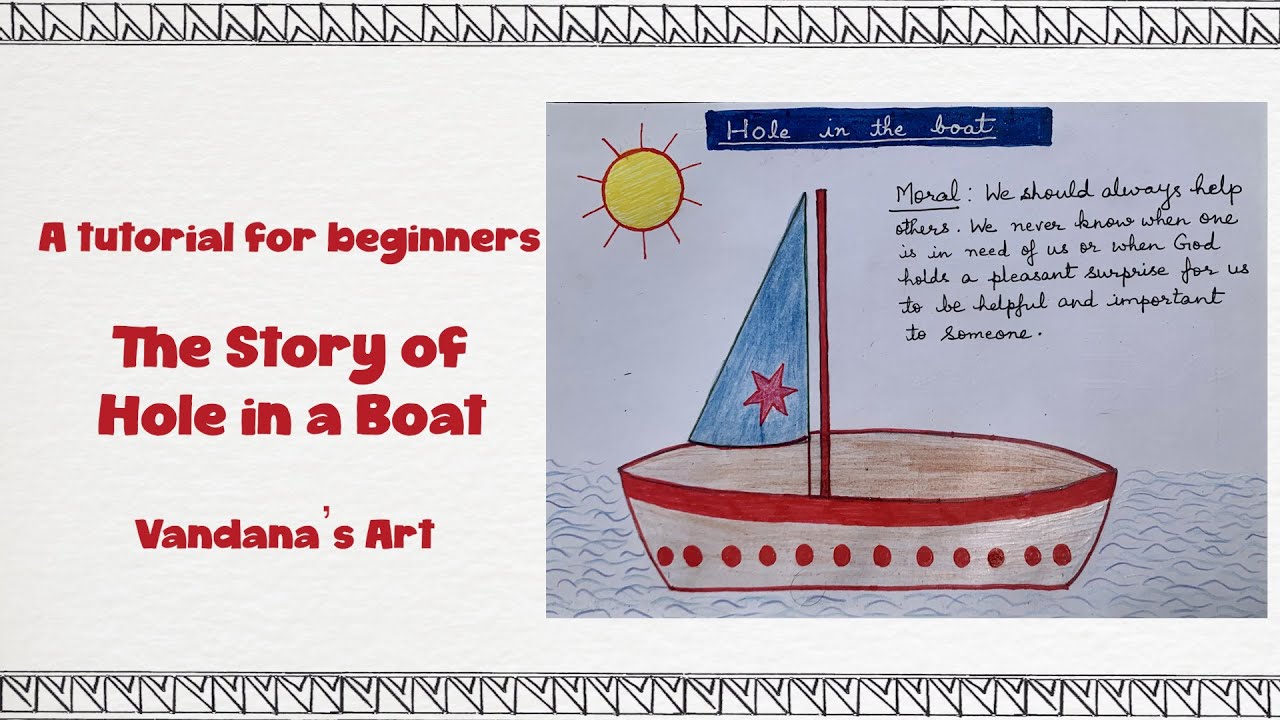 A tutorial for beginners
The Story of
Hole in a Boat
Vandana's Art
Hole in the boat
Moral: We should always help
others. We never know when one
is in need of us or when God
holds a pleasant surprise for us
to be helpful and important
to someone.